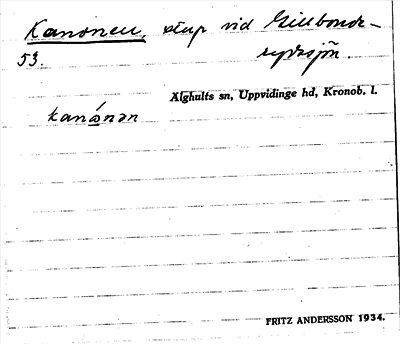 Kanonen, stup vid Gillbonde-
53. rydsjön.
Älghults sn, Uppvidinge hd, Kronob. l.
kanónən
FRITZ ANDERSSON 1934.